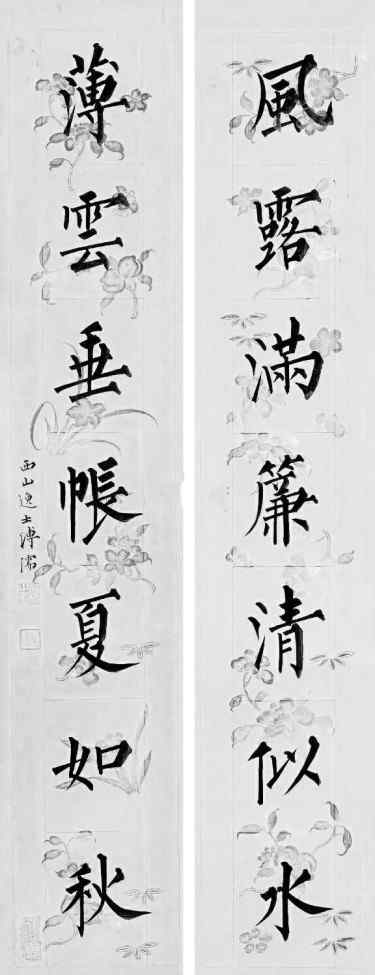 風露滿簾清似水
薄雲垂帳夏如秋
西山逸士溥濡